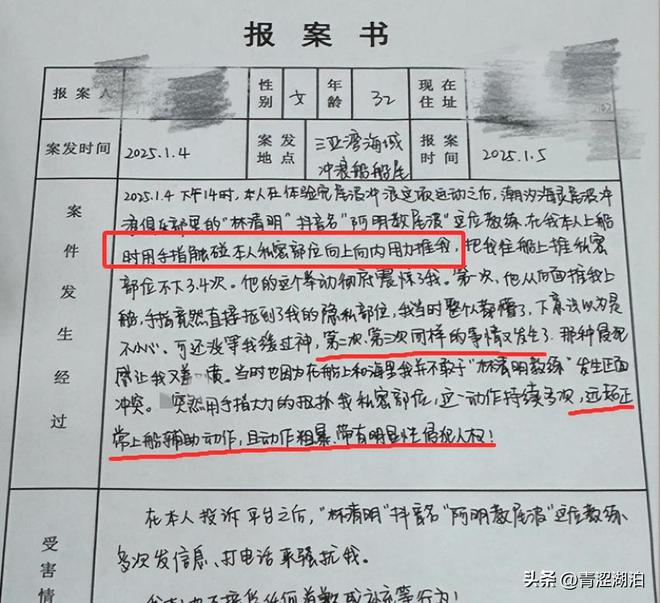 报案书
报案人 性别 女 年龄 32 现在住址
案发时间 2025.1.4 案发地点 三亚湾海域冲浪船船尾 报案时间 2025.1.5
案件发生经过
2025.1.4 下午14时，本人在体验完尾波冲浪这项运动之后，潮汐海灵尾波冲
浪俱乐部里的“林清明”抖音名“阿明教尾波”这位教练，在我本人上船
时用手指触碰本人私密部位向上向内用力推我，把我往船上推私密
部位不下3.4次。他的这个举动彻底震惊了我。第一次，他从后面推我上
船，手指竟然直接抠到了我的隐私部位，我当时整个人都懵了，下意识以为是
不小心。可还没等我缓过神，第二次、第三次同样的事情又发生了，那种屈辱
感让我又羞 愤。当时也因为在船上和海里我并不敢于“林清明教练”发生正面
冲突。 突然用手指大力的 我私密部位，这一动作持续多次，远超正
常上船辅助动作，且动作粗暴、带有明显性侵犯人权！
受害情
在本人投诉平台之后，“林清明”抖音名“阿明教尾波”这位教练
多次发信息、打电话来骚扰我。
头条 @青涩湖泊